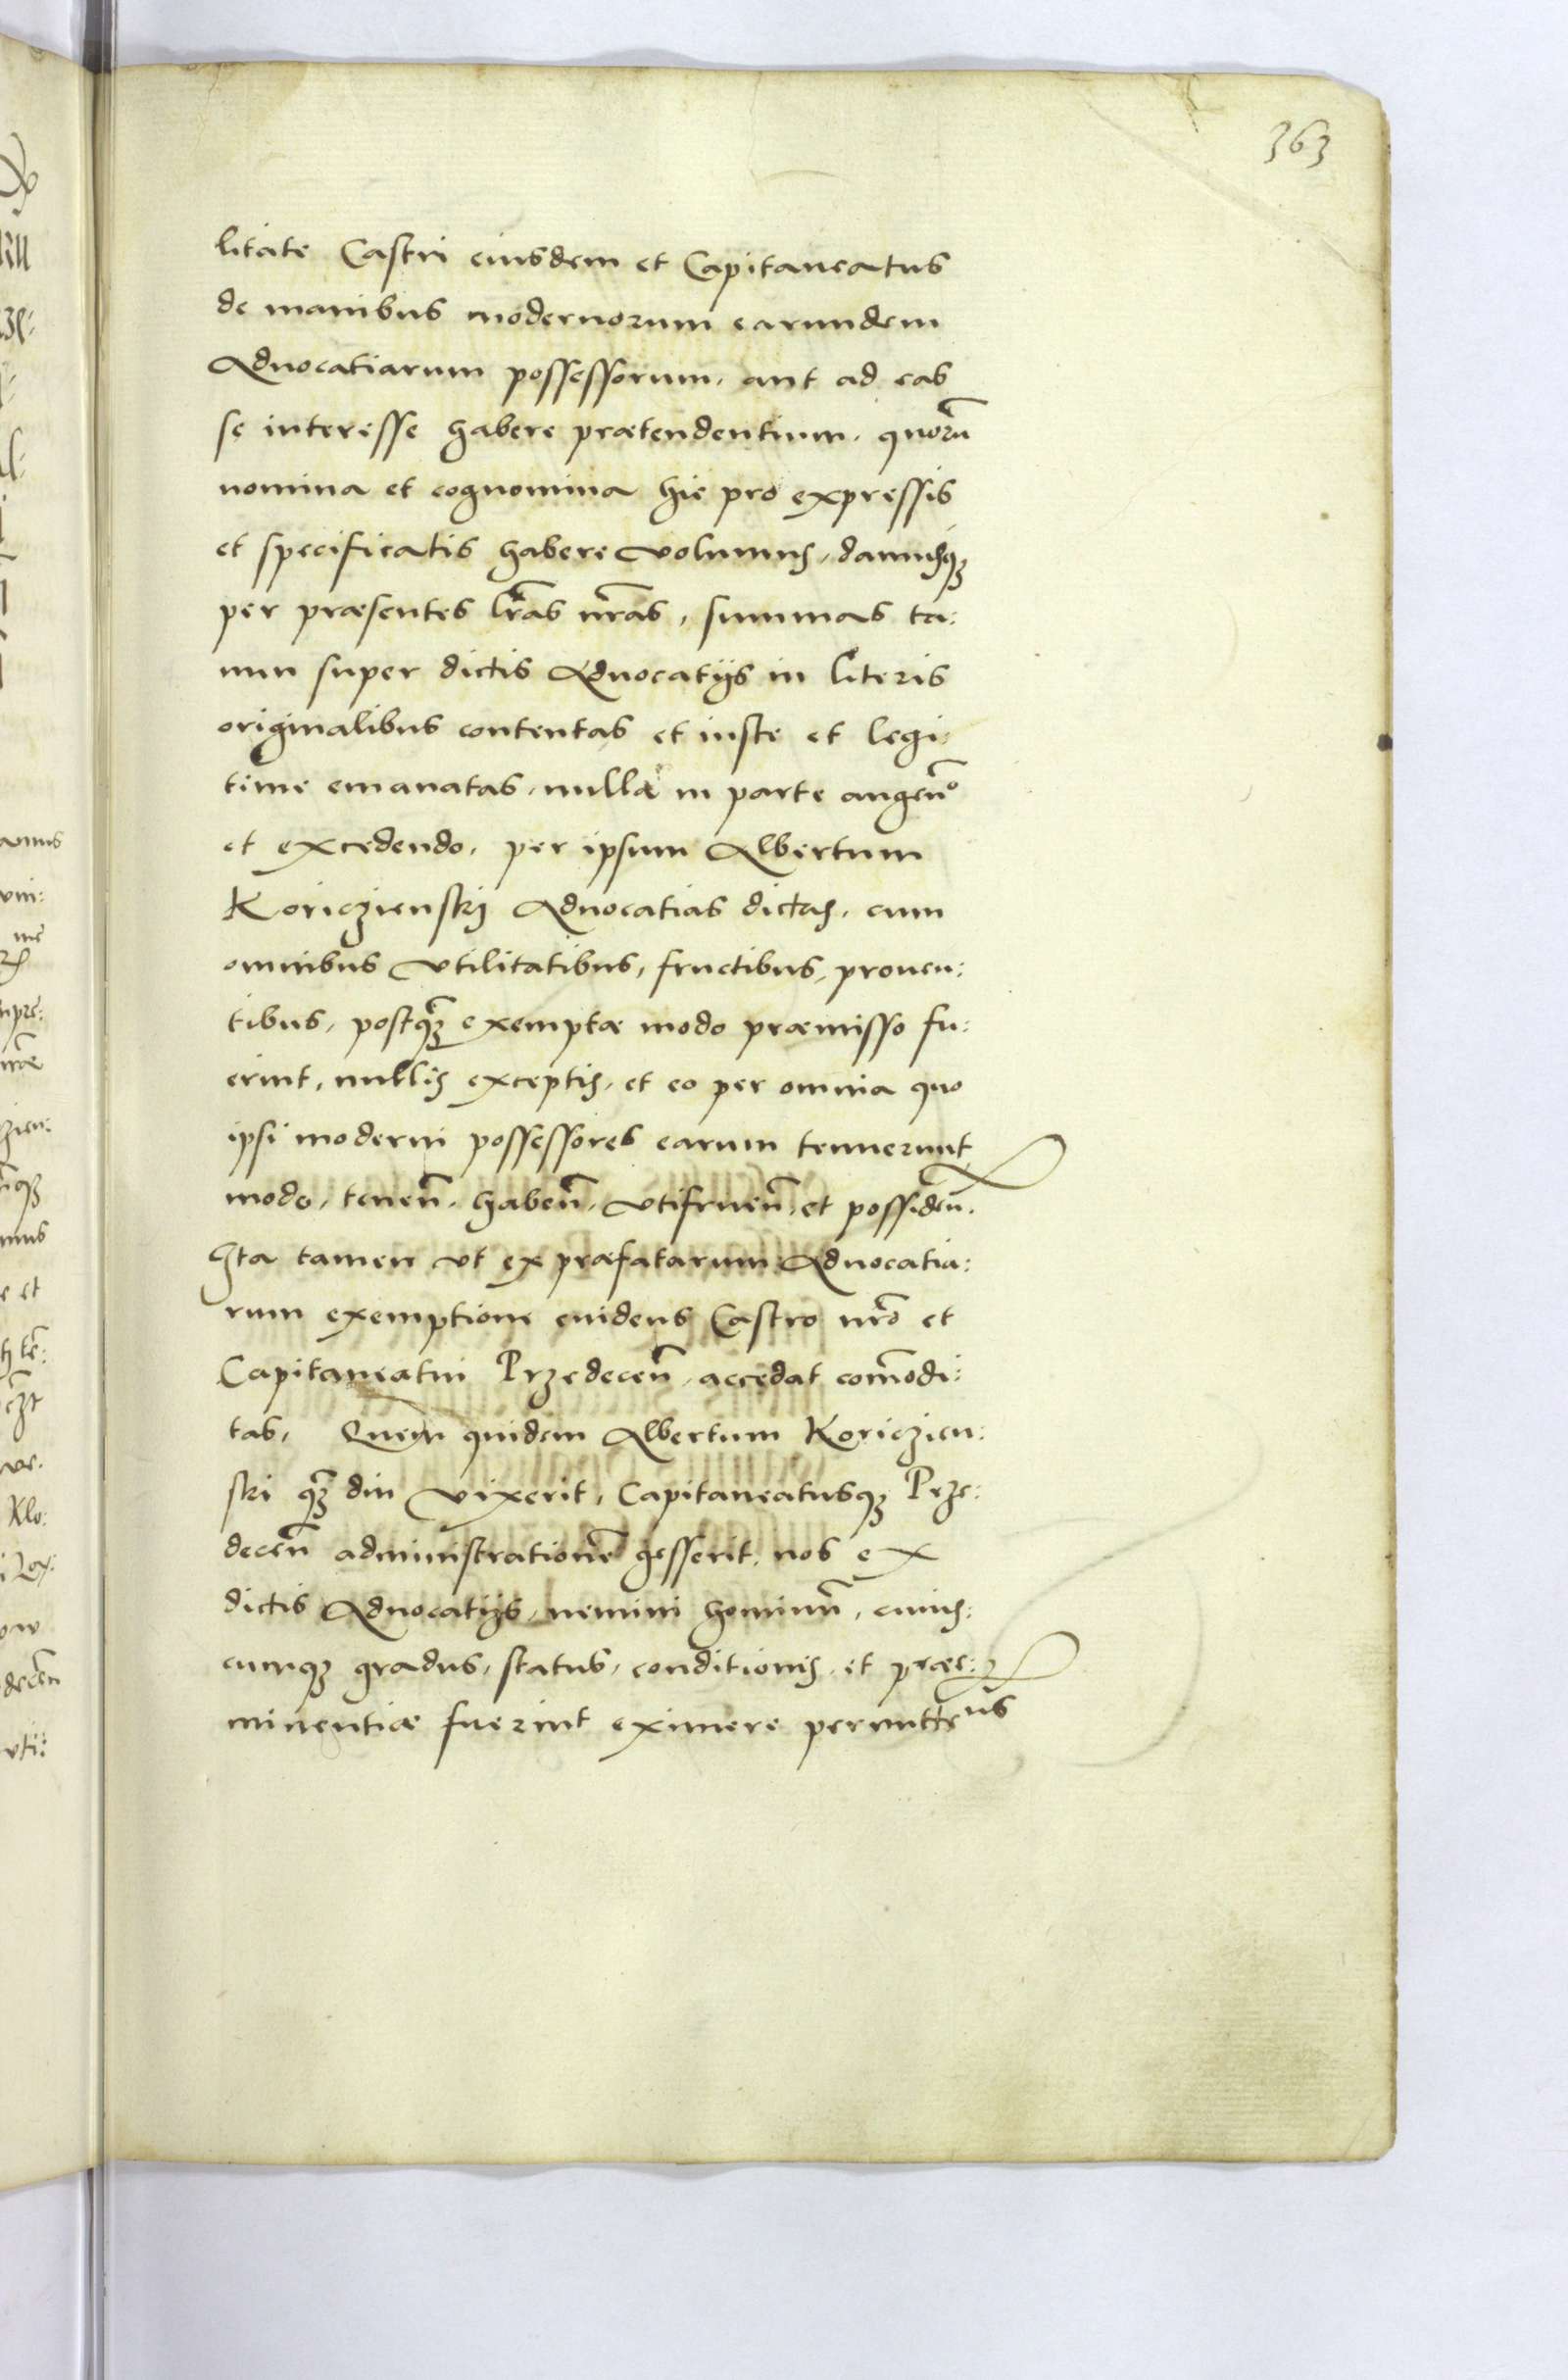 363
litate Castri eiusdem et Capitaneatus
de manibus modernorum earundem
Aduocatiarum possessorum, aut ad eas
se interesse habere prætendentium, quorũ
nomina et cognomina hic pro expressis
et specificatis habere volumus, damusq́ꝫ
per præsentes lr̃as nr̃as, summas ta:
men super dictis Aduocatijs in literis
originalibus contentas et iuste et legi:
time emanatas, nulla in parte augen̄o
et excedendo, per ipsum Albertum
Koriczienskj Aduocatias dictas, cum
omnibus vtilitatibus, fructibus, prouen:
tibus, postq̃ꝫ exemptæ modo præmisso fu:
erint, nullis exceptis, et eo per omnia quo
ipsi moderni possessores earum tenuerunt
modo, tenen̄. haben̄. vtifruen̄. et possiden̄.
Ita tamen vt ex præfatarum Aduocatia:
rum exemptione euidens Castro nr̃o et
Capitaneatui Przedecen̄. accedat com̄odi:
tas, Quem quidem Albertum Koriczien:
ski q̃ꝫ diu vixerit, Capitaneatusqꝫ Prze:
decen̄ administrationẽ gesserit, nos ex
dictis Aduocatijs, nemini hominũ, cuius:
cumqꝫ gradus, status, conditionis, et præe:
minentiæ fuerint eximere permittemus